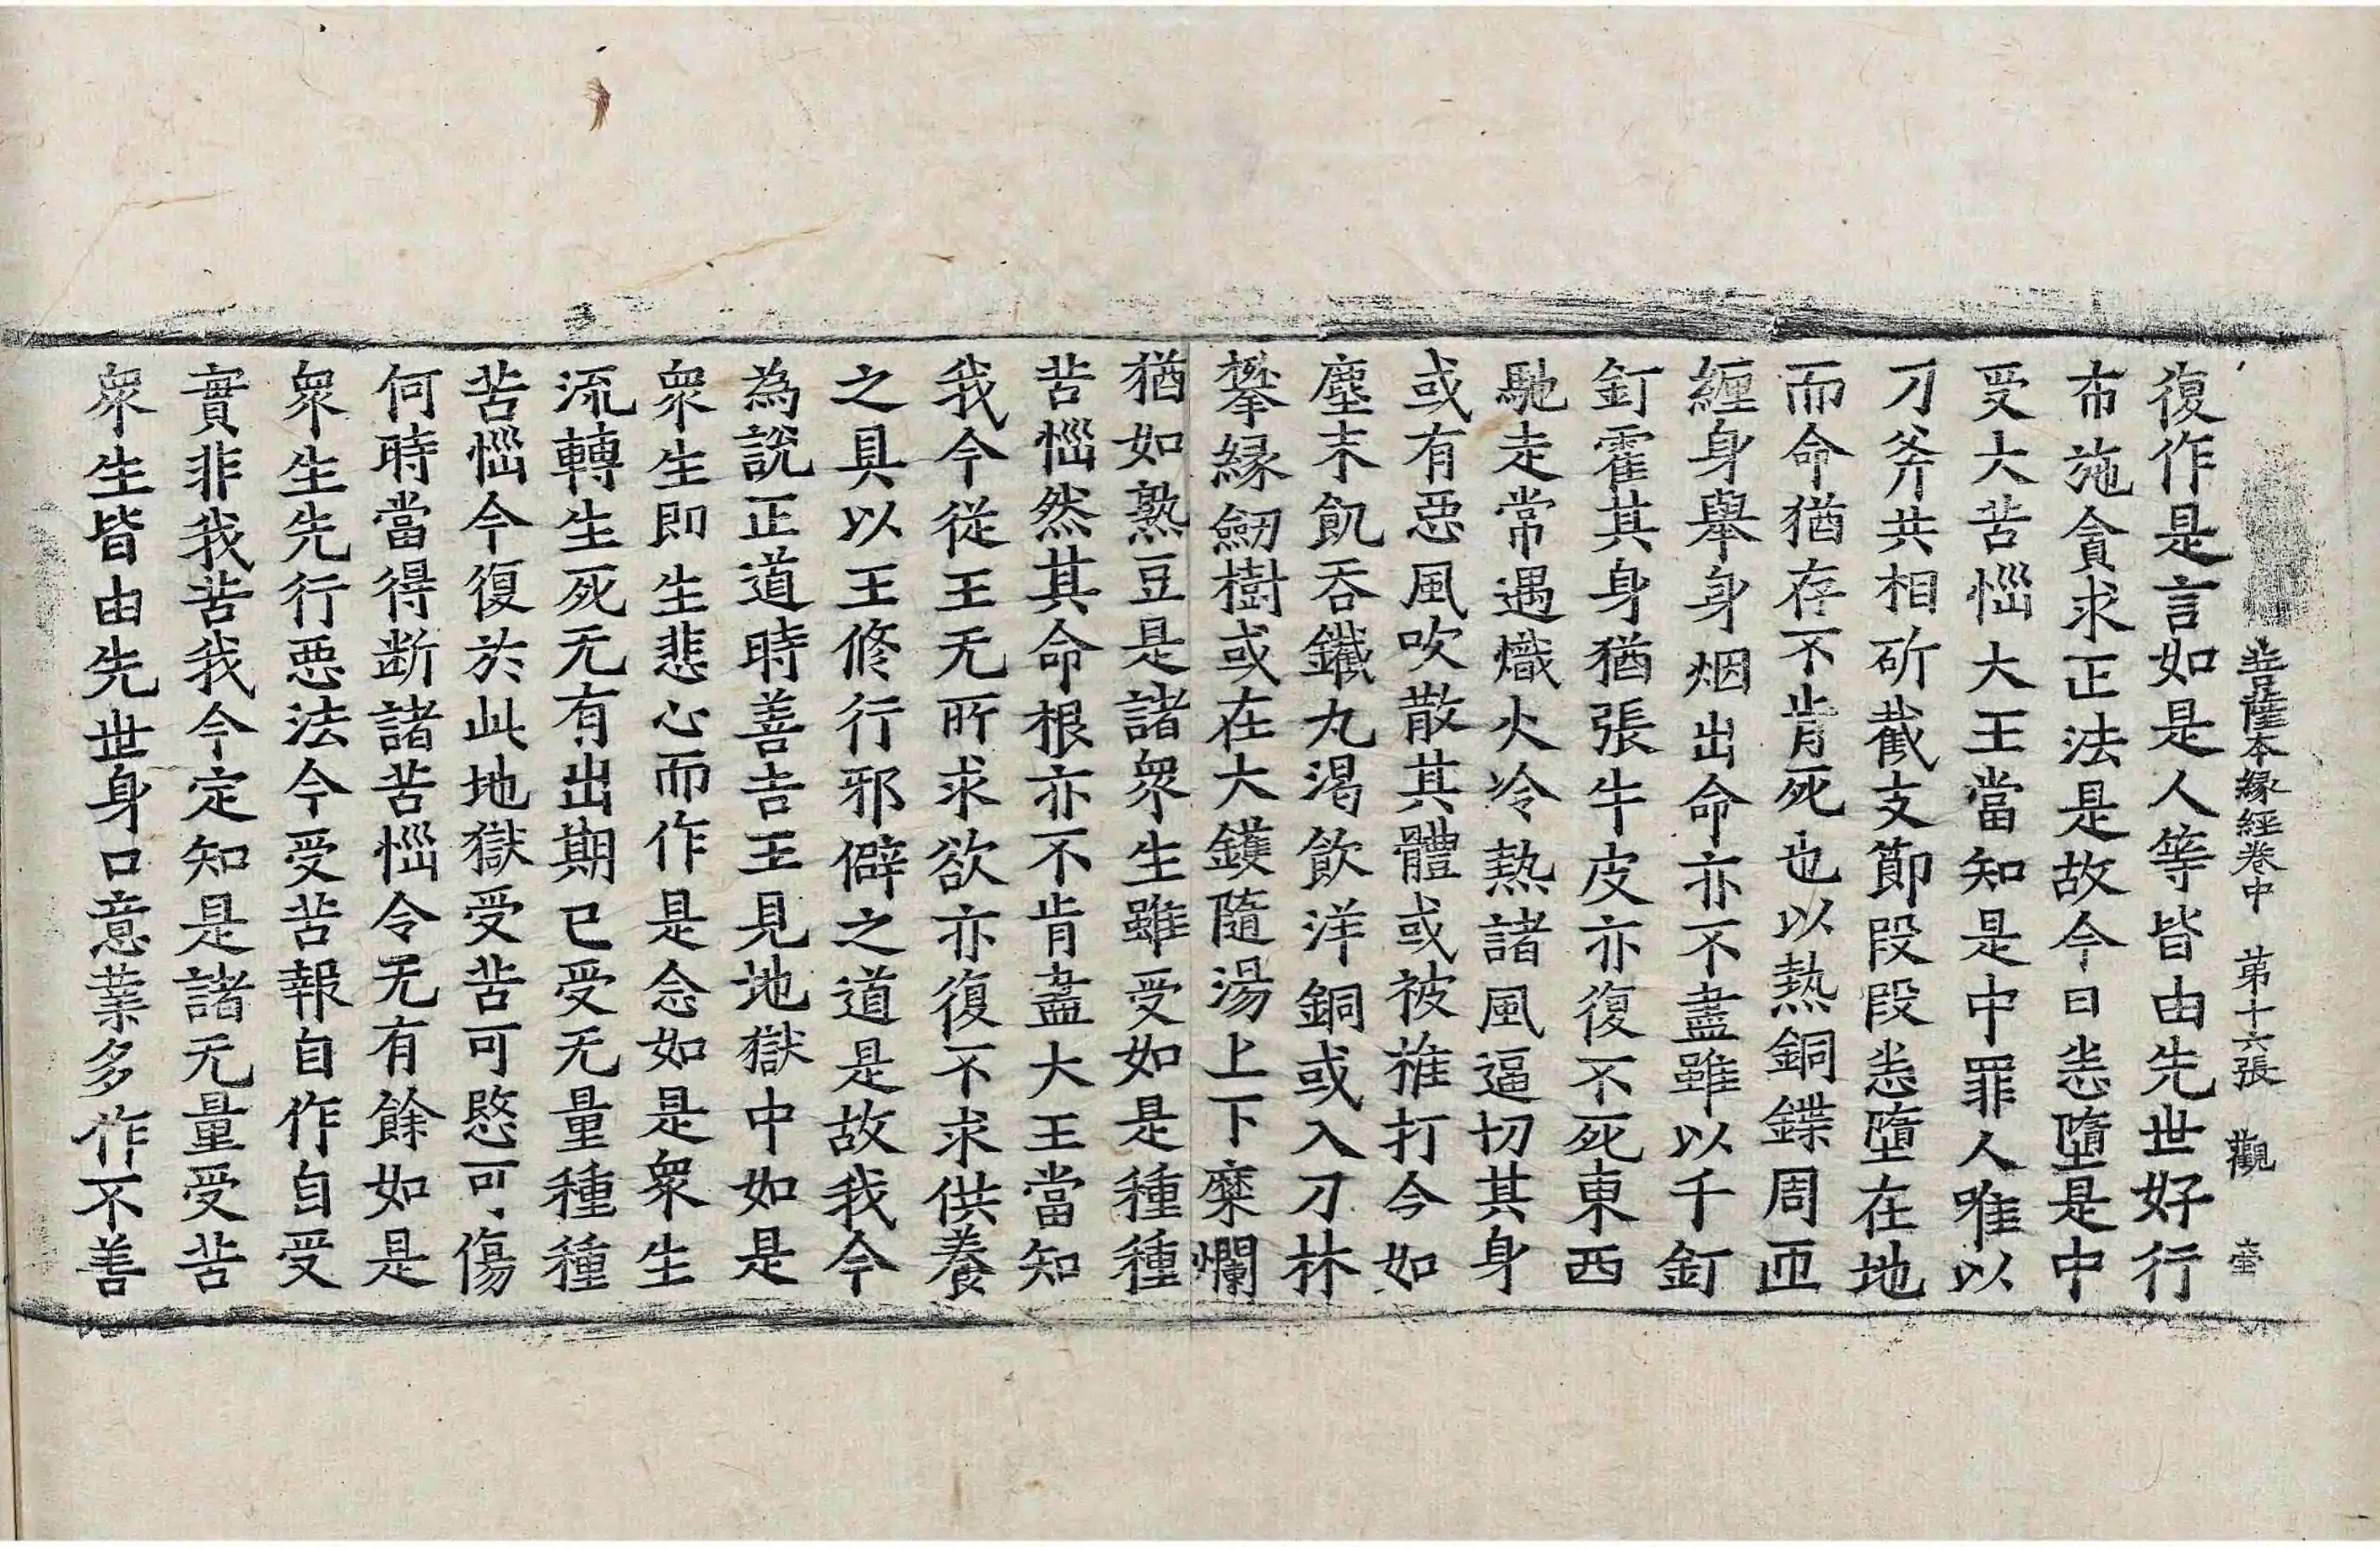 菩薩本縁經卷中 第十六張 觀
復作是言如是人等皆由先世好行
布施貪求正法是故今日恙墮是中
受大苦惱大王當知是中罪人唯以
刀斧共相斫截支節段段恙墮在地
而命猶存不肯死也以熱銅鍱周匝
纏身舉身烟出命亦不盡雖以千釘
釘霍其身猶張牛皮亦復不死東西
馳走常遇熾火冷熱諸風逼切其身
或有惡風吹散其體或被推打今如
塵末飢吞鐵丸渴飲洋銅或入刀林
攀縁劒樹或在大鑊隨湯上下糜爛
猶如熟豆是諸衆生雖受如是種種
苦惱然其命根亦不肯盡大王當知
我今從王无所求欲亦復不求供養
之具以王修行邪僻之道是故我今
為說正道時善吉王見地獄中如是
衆生即生悲心而作是念如是衆生
流轉生死无有出期已受无量種種
苦惱今復於此地獄受苦可愍可傷
何時當得斷諸苦惱令无有餘如是
衆生先行惡法今受苦報自作自受
實非我苦我今定知是諸无量受苦
衆生皆由先世身口意業多作不善